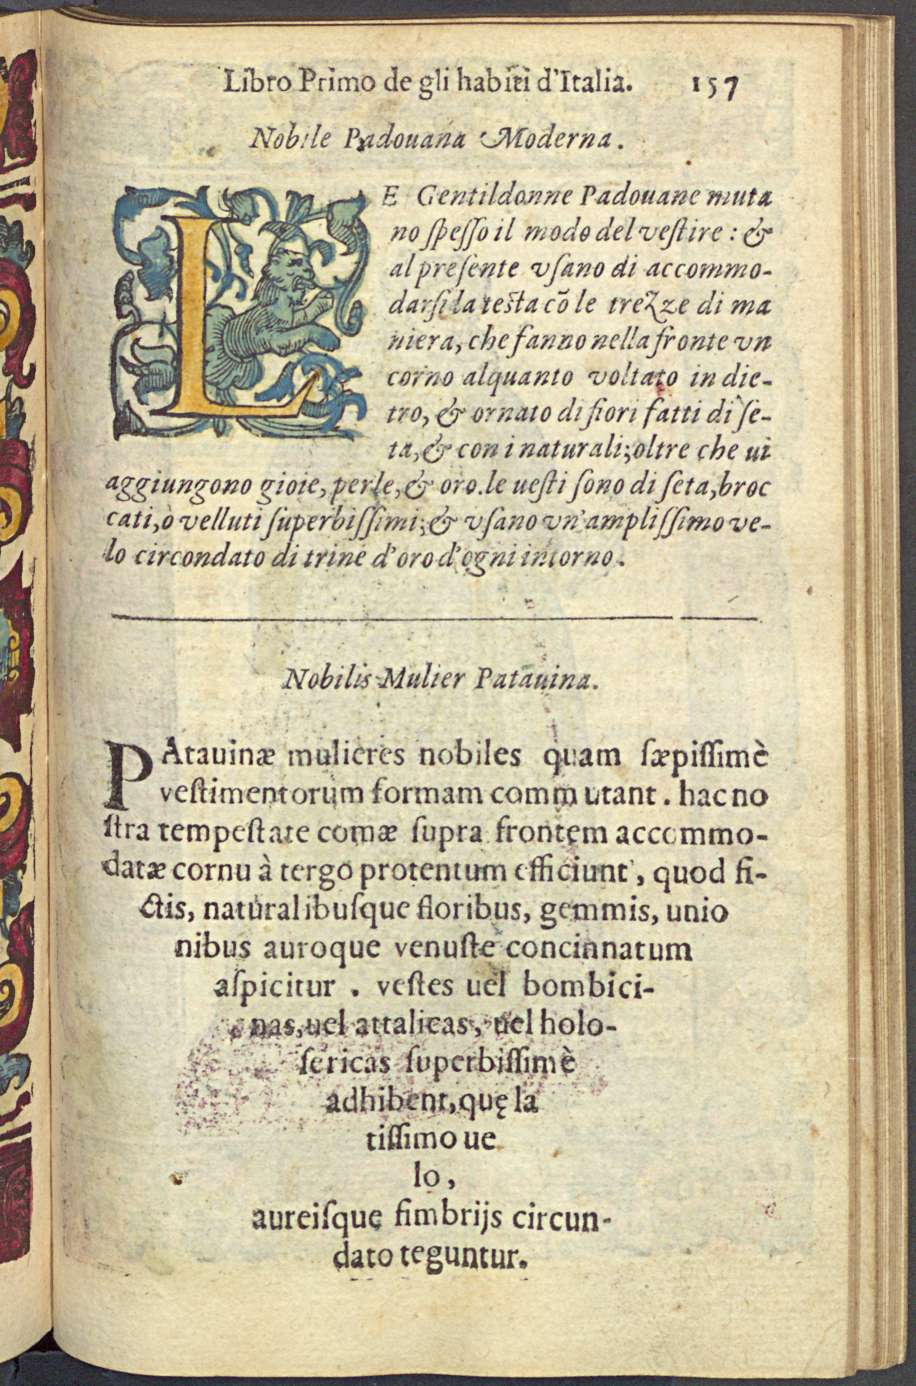 Libro Primo de gli habiti d'Italia. 157
Nobile Padouana Moderna.
LE Gentildonne Padouane muta
no ſpeſſo il modo del veſtire: &
al preſente vſano di accommo-
darſi la teſta cõ le trezze di ma
niera, che fanno nella fronte vn
corno alquanto voltato in die-
tro, & ornato di fiori fatti di ſe-
ta, & con i naturali; oltre che ui
aggiungono gioie, perle, & oro. le ueſti ſono di ſeta, broc
cati, ò velluti ſuperbiſſimi; & vſano vn'ampliſſimo ve-
lo circondato di trine d'oro d'ogni intorno.
Nobilis Mulier Patauina.
PAtauinæ mulieres nobiles quam ſæpiſſimè
veſtimentorum formam commutant. hac no
ſtra tempeſtate comæ ſupra frontem accommo-
datæ cornu à tergo protentum efficiunt, quod fi-
ctis, naturalibuſque floribus, gemmis, unio
nibus auroque venuſte concinnatum
aſpicitur. veſtes uel bombici-
nas, uel attalicas, uel holo-
ſericas ſuperbiſſimè
adhibent, quę la
tiſſimo ue
lo,
aureiſque fimbrijs circun-
dato teguntur.